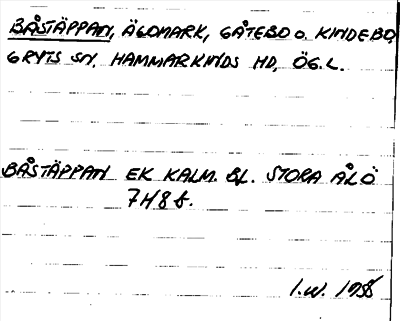 BÅSTÄPPAN, ÄGOMARK, GÅTEBO O. KINDEBO,
GRYTS SN, HAMMARKINDS HD, ÖG.L.
BÅSTÄPPAN EK KALM. BL. STORA ÅLÖ
7H8f.
I.W. 1988